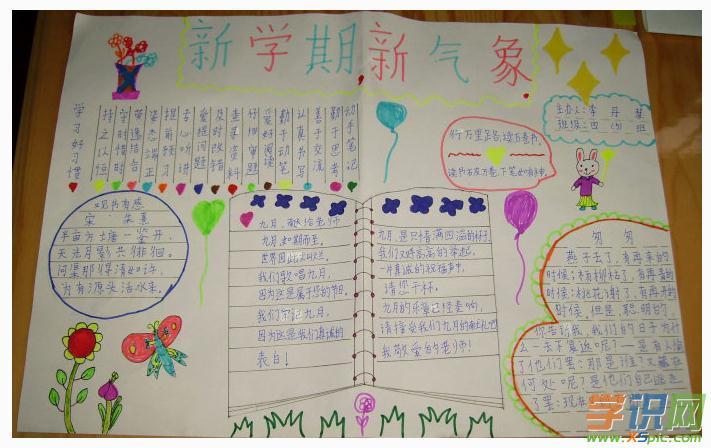 新学期新气象
主办人:李丹
班级:四(3)班
学习好习惯
持之以恒
守时惜时
劳逸结合
姿态端正
提前预习
专心听讲
爱提问题
及时改错
查葚资料
仔细审题
爱好阅读
勤于动笔
认真书写
善于交流
勤于思考
动手笔记
行万里足
读书破万卷,下笔如有神。
观书有感
宋 朱熹
半亩方塘一鉴开,
天光云影共徘徊。
问渠那得清如许,
为有源头活水来。
九月,献给老师
九月如期而至,
世界因此
我们歌唱九月,
因为这是属于您的节日。
我们牢记九月,
因为这是我们真诚的
表白!
九月,是只情满四溢的杯子,
我们又将高高的举起,
一片真诚的祝福声中,
请您干杯。
九月的乐章已经奏响,
请接受我们九月的献礼吧
我敬爱的老师!
匆匆
燕子去了,有再来的
时候;杨柳枯了,有再青的
时候;桃花谢了,有再开的
时候。但是,聪明的,
你告诉我,我们的日子为什
么一去不复返呢?——是有人偷
了他们罢:那是谁?又藏在
何处呢?是他们自己逃走
了罢:现在
学识网
www.xspic.com